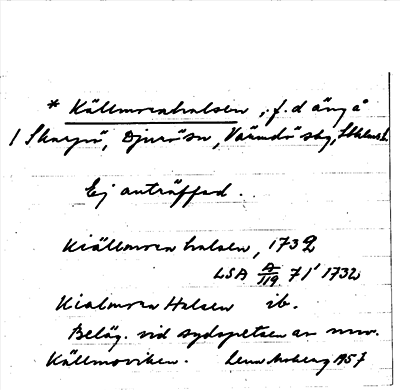 * Källmorahalsen, f.d äng å
1 Skarpö, Djurö sn, Värmdö skg, Sthlms l.
Ej anträffad.
Kiällmora halsen, 1732
LSA A/119 71' 1732
Kialmora Halsen ib.
Beläg. vid sydspetsen av nuv.
Källmoraviken. 1957